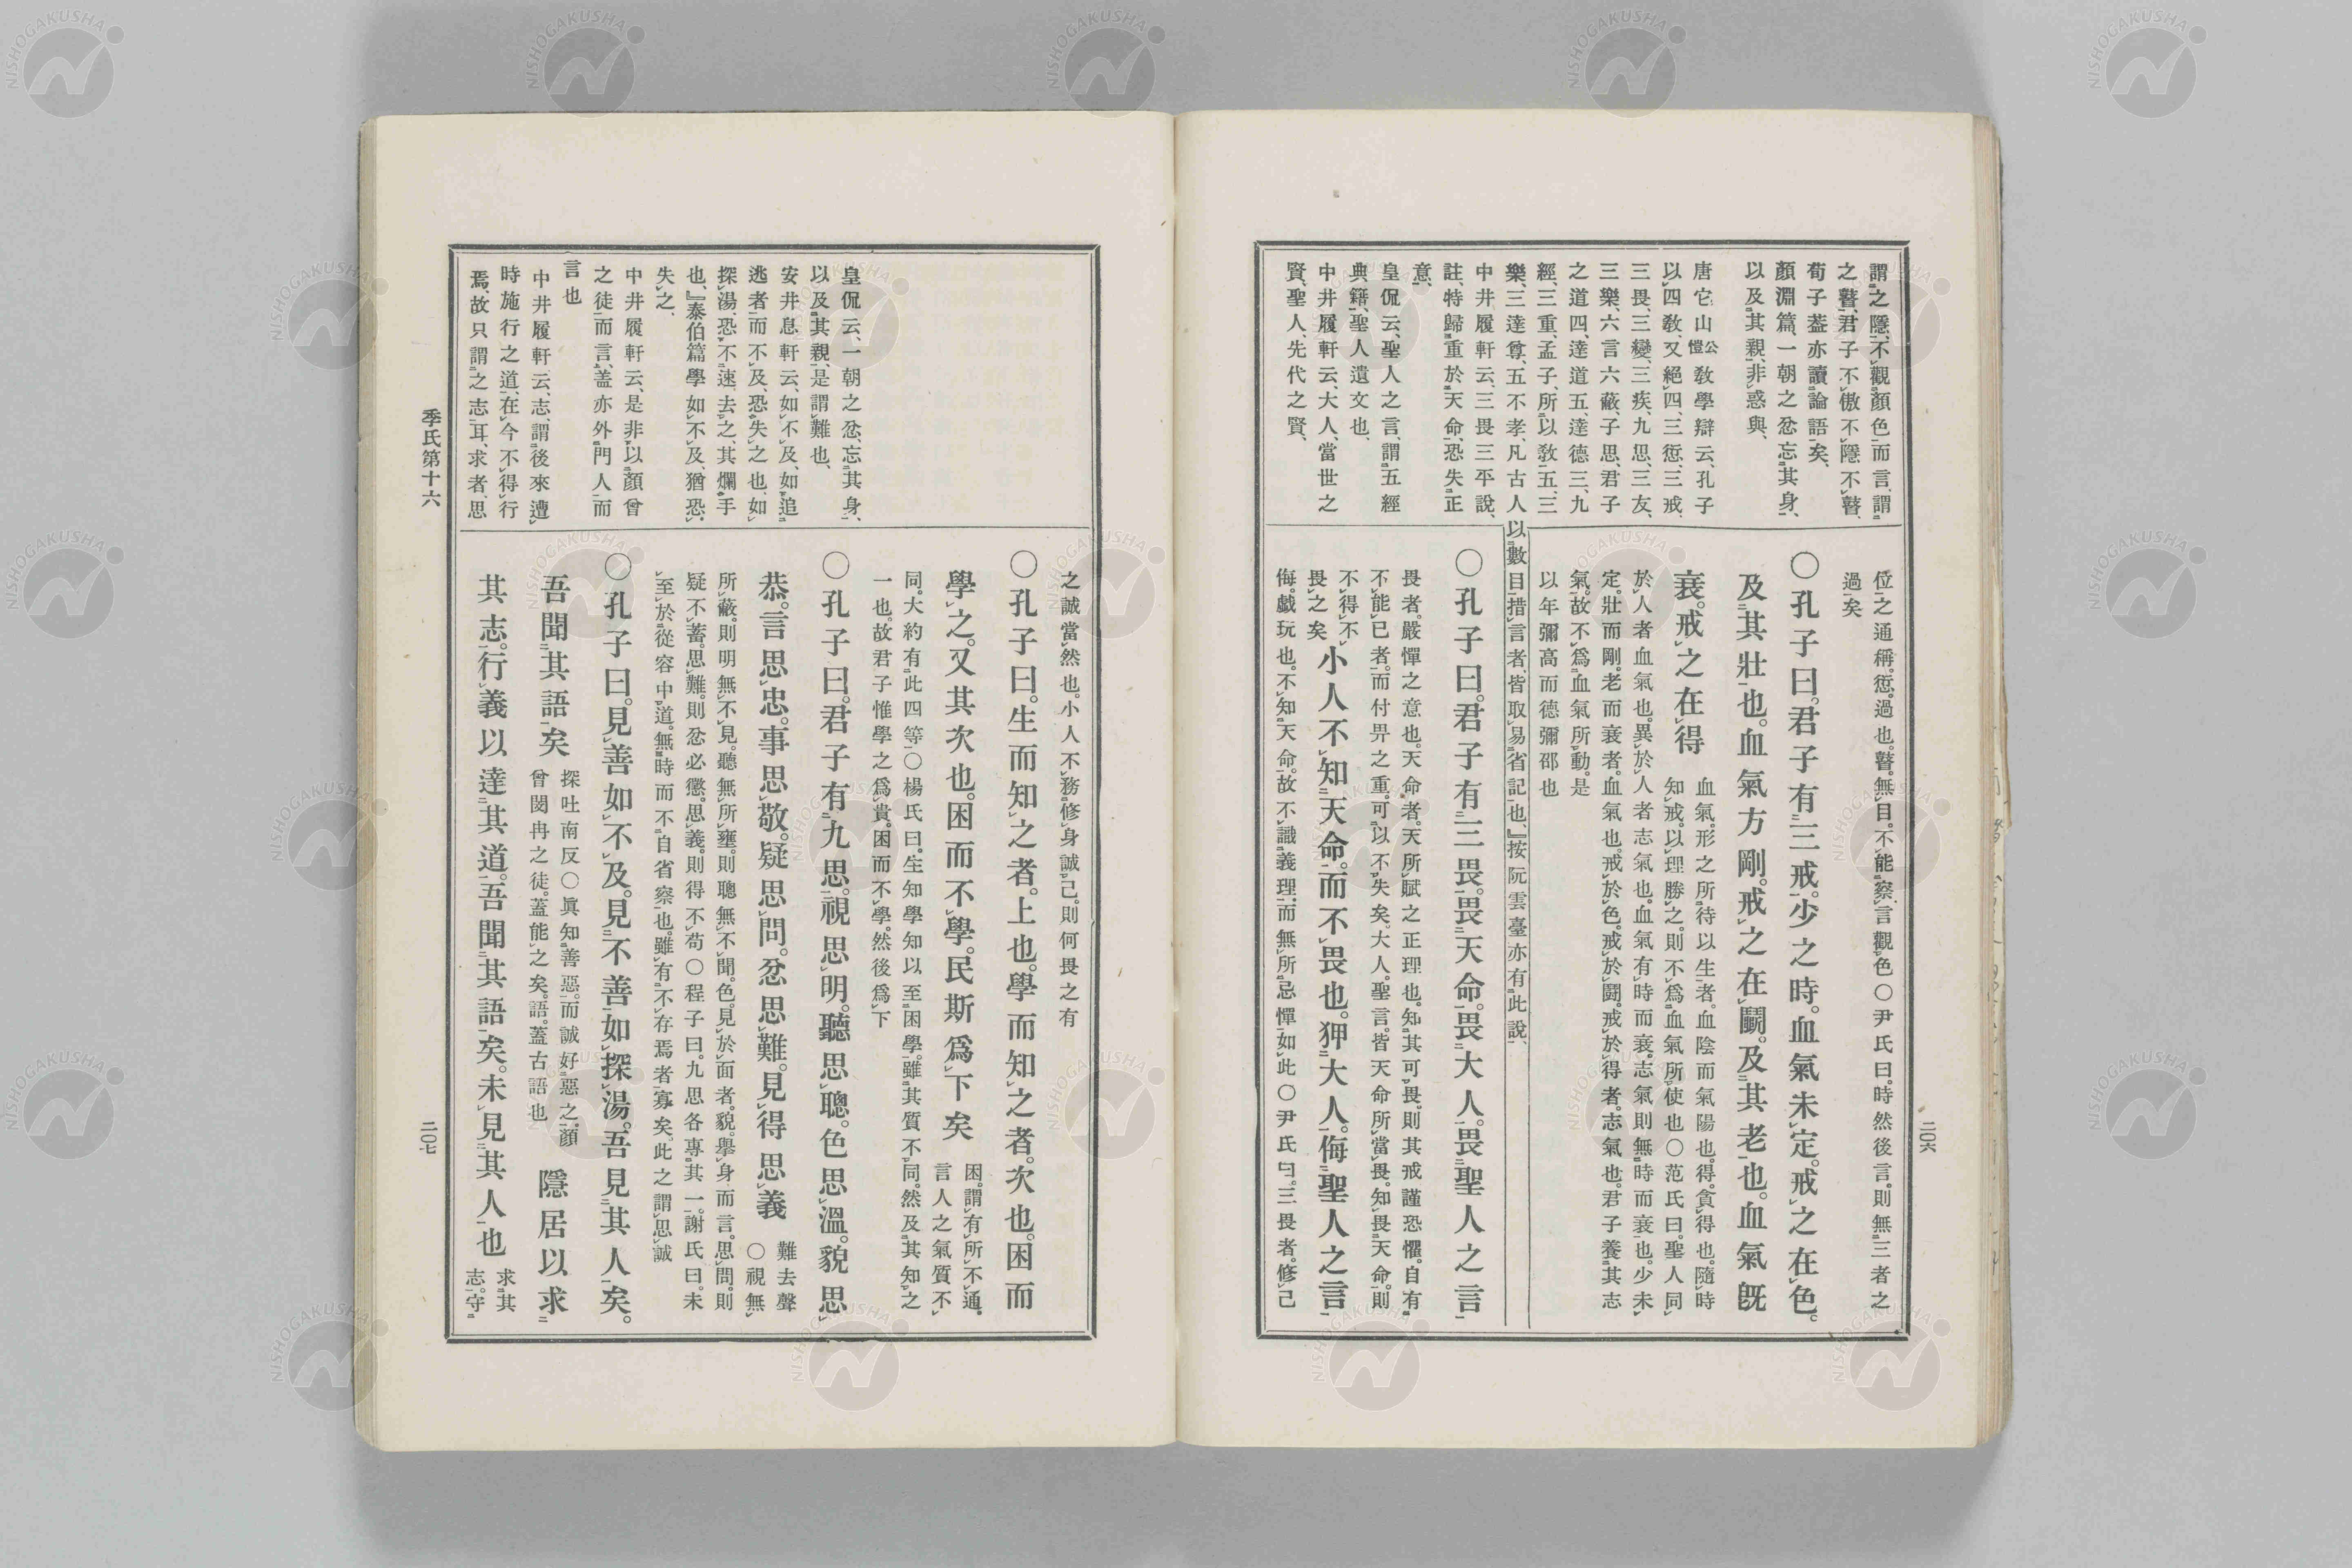 謂之隱、不觀顏色而言、謂
之瞽、君子不傲不隱不瞽、
荀子蓋亦讀論語矣、
顏淵篇、一朝之忿忘其身、
以及其親、非惑與、
唐它山公愷敎學辯云、孔子
以四敎、又絕四、三愆、三戒、
三畏、三變、三疾、九思、三友、
三樂、六言六蔽、子思、君子
之道四、達道五、達德三、九
經、三重、孟子、所以敎五、三
樂、三達尊、五不孝、凡古人
以數目措言者、皆取易省記也、』按阮雲臺亦有此說、
中井履軒云、三畏三平說、
註、特歸重於天命、恐失正
意、
皇侃云、聖人之言、謂五經
典籍、聖人遺文也、
中井履軒云、大人、當世之
賢、聖人、先代之賢、
位之通稱。愆。過也。瞽。無目。不能察言觀色〇尹氏曰。時然後言。則無三者之
過矣
〇孔子曰。君子有三戒。少之時。血氣未定。戒之在色。
及其壯也。血氣方剛。戒之在鬭。及其老也。血氣旣
衰。戒之在得
血氣。形之所待以生者。血陰而氣陽也。得。貪得也。隨時
知戒。以理勝之。則不爲血氣所使也〇范氏曰。聖人同
於人者血氣也。異於人者志氣也。血氣有時而衰。志氣則無時而衰也。少未
定。壯而剛。老而衰者。血氣也。戒於色。戒於鬭。戒於得者。志氣也。君子養其志
氣。故不爲血氣所動。是
以年彌高而德彌邵也
〇孔子曰。君子有三畏。畏天命。畏大人。畏聖人之言
畏者。嚴憚之意也。天命者。天所賦之正理也。知其可畏。則其戒謹恐懼。自有
不能已者。而付畀之重。可以不失矣。大人。聖言。皆天命所當畏。知畏天命。則
不得不
畏之矣
小人不知天命。而不畏也。狎大人。侮聖人之言
侮。戲玩也。不知天命。故不識義理。而無所忌憚如此〇尹氏曰。三畏者。修己
二〇六
皇侃云、一朝之忿、忘其身、
以及其親、是謂難也、
安井息軒云、如不及、如追
逃者而不及、恐失之也、如
探湯、恐不速去之、其爛手
也、』泰伯篇學如不及、猶恐
失之、
中井履軒云、是非以顏曾
之徒而言、蓋亦外門人而
言也
中井履軒云、志、謂後來遭
時施行之道、在今不得行
焉、故只謂之志耳、求者、思
之誠當然也。小人不務修身誠己。則何畏之有
〇孔子曰。生而知之者。上也。學而知之者。次也。困而
學之。又其次也。困而不學。民斯爲下矣
困。謂有所不通。
言人之氣質不
同。大約有此四等〇楊氏曰。生知學知以至困學。雖其質不同。然及其知之
一也。故君子惟學之爲貴。困而不學。然後爲下
〇孔子曰。君子有九思。視思明。聽思聰。色思溫。貌思
恭。言思忠。事思敬。疑思問。忿思難。見得思義
難去聲
〇視無
所蔽。則明無不見。聽無所壅。則聰無不聞。色。見於面者。貌。擧身而言。思問。則
疑不蓄。思難。則忿必懲。思義。則得不苟〇程子曰。九思各專其一。謝氏曰。未
至於從容中道。無時而不自省察也。雖有不存焉者寡矣。此之謂思誠
〇孔子曰。見善如不及。見不善如探湯。吾見其人矣。
吾聞其語矣
探吐南反〇眞知善惡。而誠好惡之。顏
曾閔冉之徒。蓋能之矣。語。蓋古語也
隱居以求
其志。行義以達其道。吾聞其語矣。未見其人也
求其
志。守
季氏第十六
二〇七